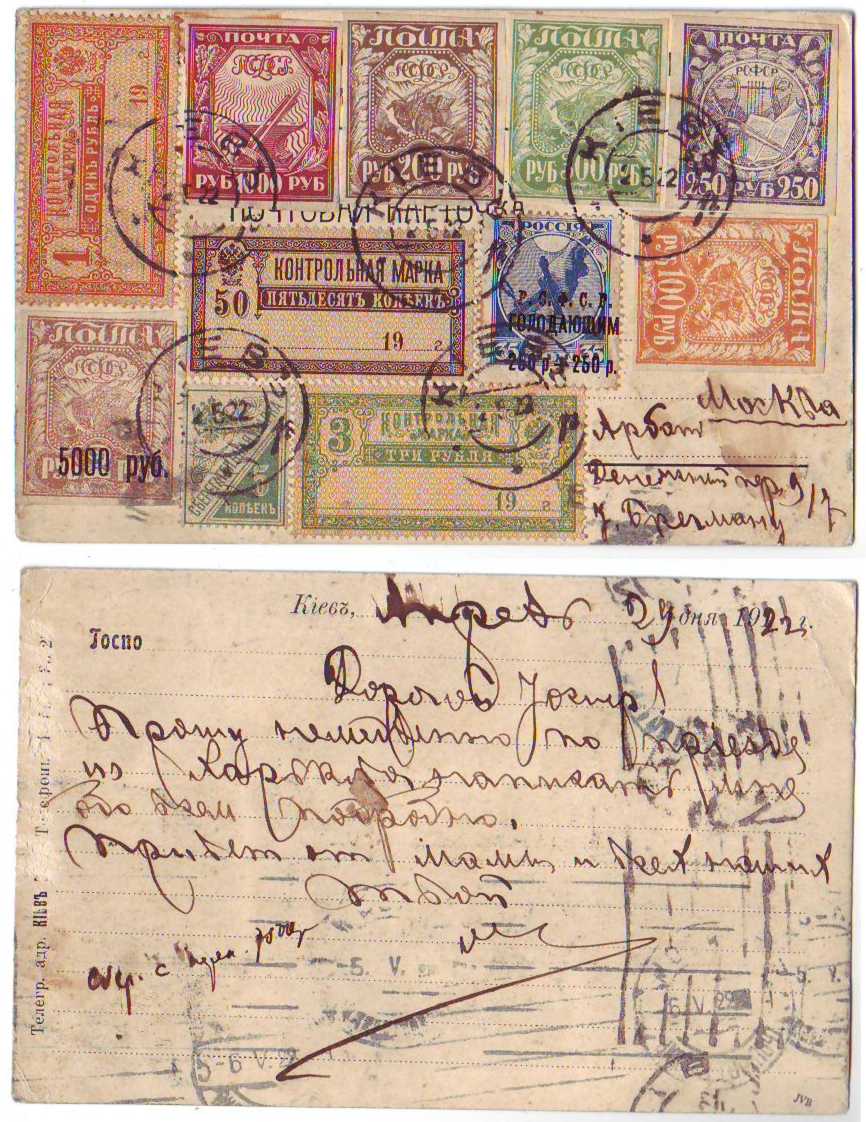 ПОЧТА
РСФСР
РУБ 1000 РУБ
ПОЧТА
РСФСР
РУБ 200 РУБ
ПОЧТА
РСФСР
РУБ 300 РУБ
ПОЧТА
РСФСР
250 РУБ 250
КОНТРОЛЬНАЯ
МАРКА
ОДИНЪ РУБЛЬ
1
19
КІЕВЪ
2.5.22
ПОЧТОВАЯ КАРТОЧКА
50
КОНТРОЛЬНАЯ МАРКА
ПЯТЬДЕСЯТЪ КОПѢЕКЪ
19 г
РОССІЯ
Р. С. Ф. С. Р.
ГОЛОДАЮЩИМ
250 р. + 250 р.
ПОЧТА
РСФСР
РУБ 100 РУБ
ПОЧТА
РСФСР
5000 руб.
5
КОПѢЕКЪ
3
КОНТРОЛЬНАЯ
МАРКА
ТРИ РУБЛЯ
19 г
Москва
Арбат
Денежный пер. 9/7
Брегману
Кіевъ, Апрель 29 дня 1922 г.
Госпо
Дорогой
Прошу немедленно по приезде
из Харькова написать мне
обо всем подробно.
Привет от мамы и всех наших
Твой
Телегр. адр. КІЕВЪ
5-6 V. 22
5. V.
6 V. 22
JVB